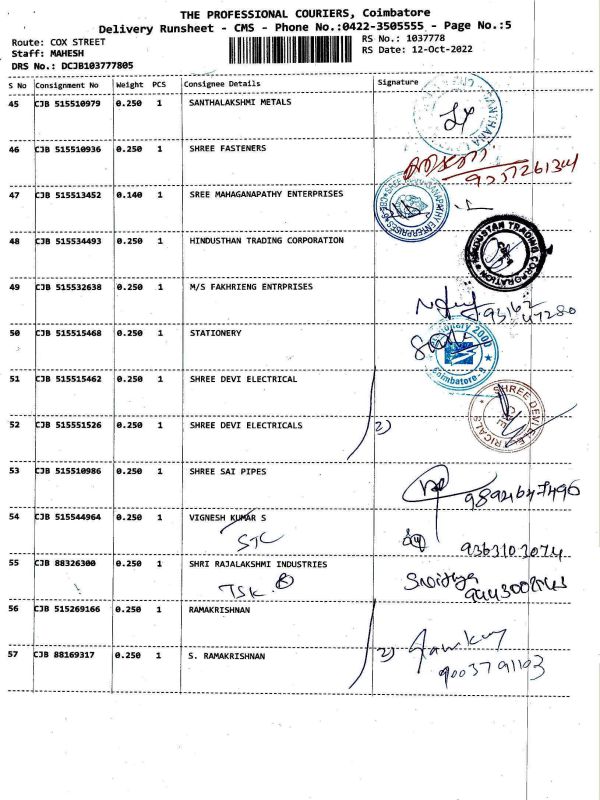 THE PROFESSIONAL COURIERS, Coimbatore
Delivery Runsheet - CMS - Phone No.:0422-3505555 - Page No.:5
Route: COX STREET
RS No.: 1037778
Staff: MAHESH
RS Date: 12-Oct-2022
DRS No.: DCJB103777805
S No Consignment No Weight PCS Consignee Details Signature
45 CJB 515510979 0.250 1 SANTHALAKSHMI METALS
46 CJB 515510936 0.250 1 SHREE FASTENERS
47 CJB 515513452 0.140 1 SREE MAHAGANAPATHY ENTERPRISES
48 CJB 515534493 0.250 1 HINDUSTHAN TRADING CORPORATION
HINDUSTAN TRADING CORPORATION
49 CJB 515532638 0.250 1 M/S FAKHRIENG ENTRPRISES
93162
47280
50 CJB 515515468 0.250 1 STATIONERY
Stationery 2000
Coimbatore
51 CJB 515515462 0.250 1 SHREE DEVI ELECTRICAL
SHREE DEVI ELECTRICALS
52 CJB 515551526 0.250 1 SHREE DEVI ELECTRICALS 2)
53 CJB 515510986 0.250 1 SHREE SAI PIPES
54 CJB 515544964 0.250 1 VIGNESH KUMAR S
STC
9363103074
55 CJB 88326300 0.250 1 SHRI RAJALAKSHMI INDUSTRIES
TSK
56 CJB 515269166 0.250 1 RAMAKRISHNAN
57 CJB 88169317 0.250 1 S. RAMAKRISHNAN 2)
9003791103